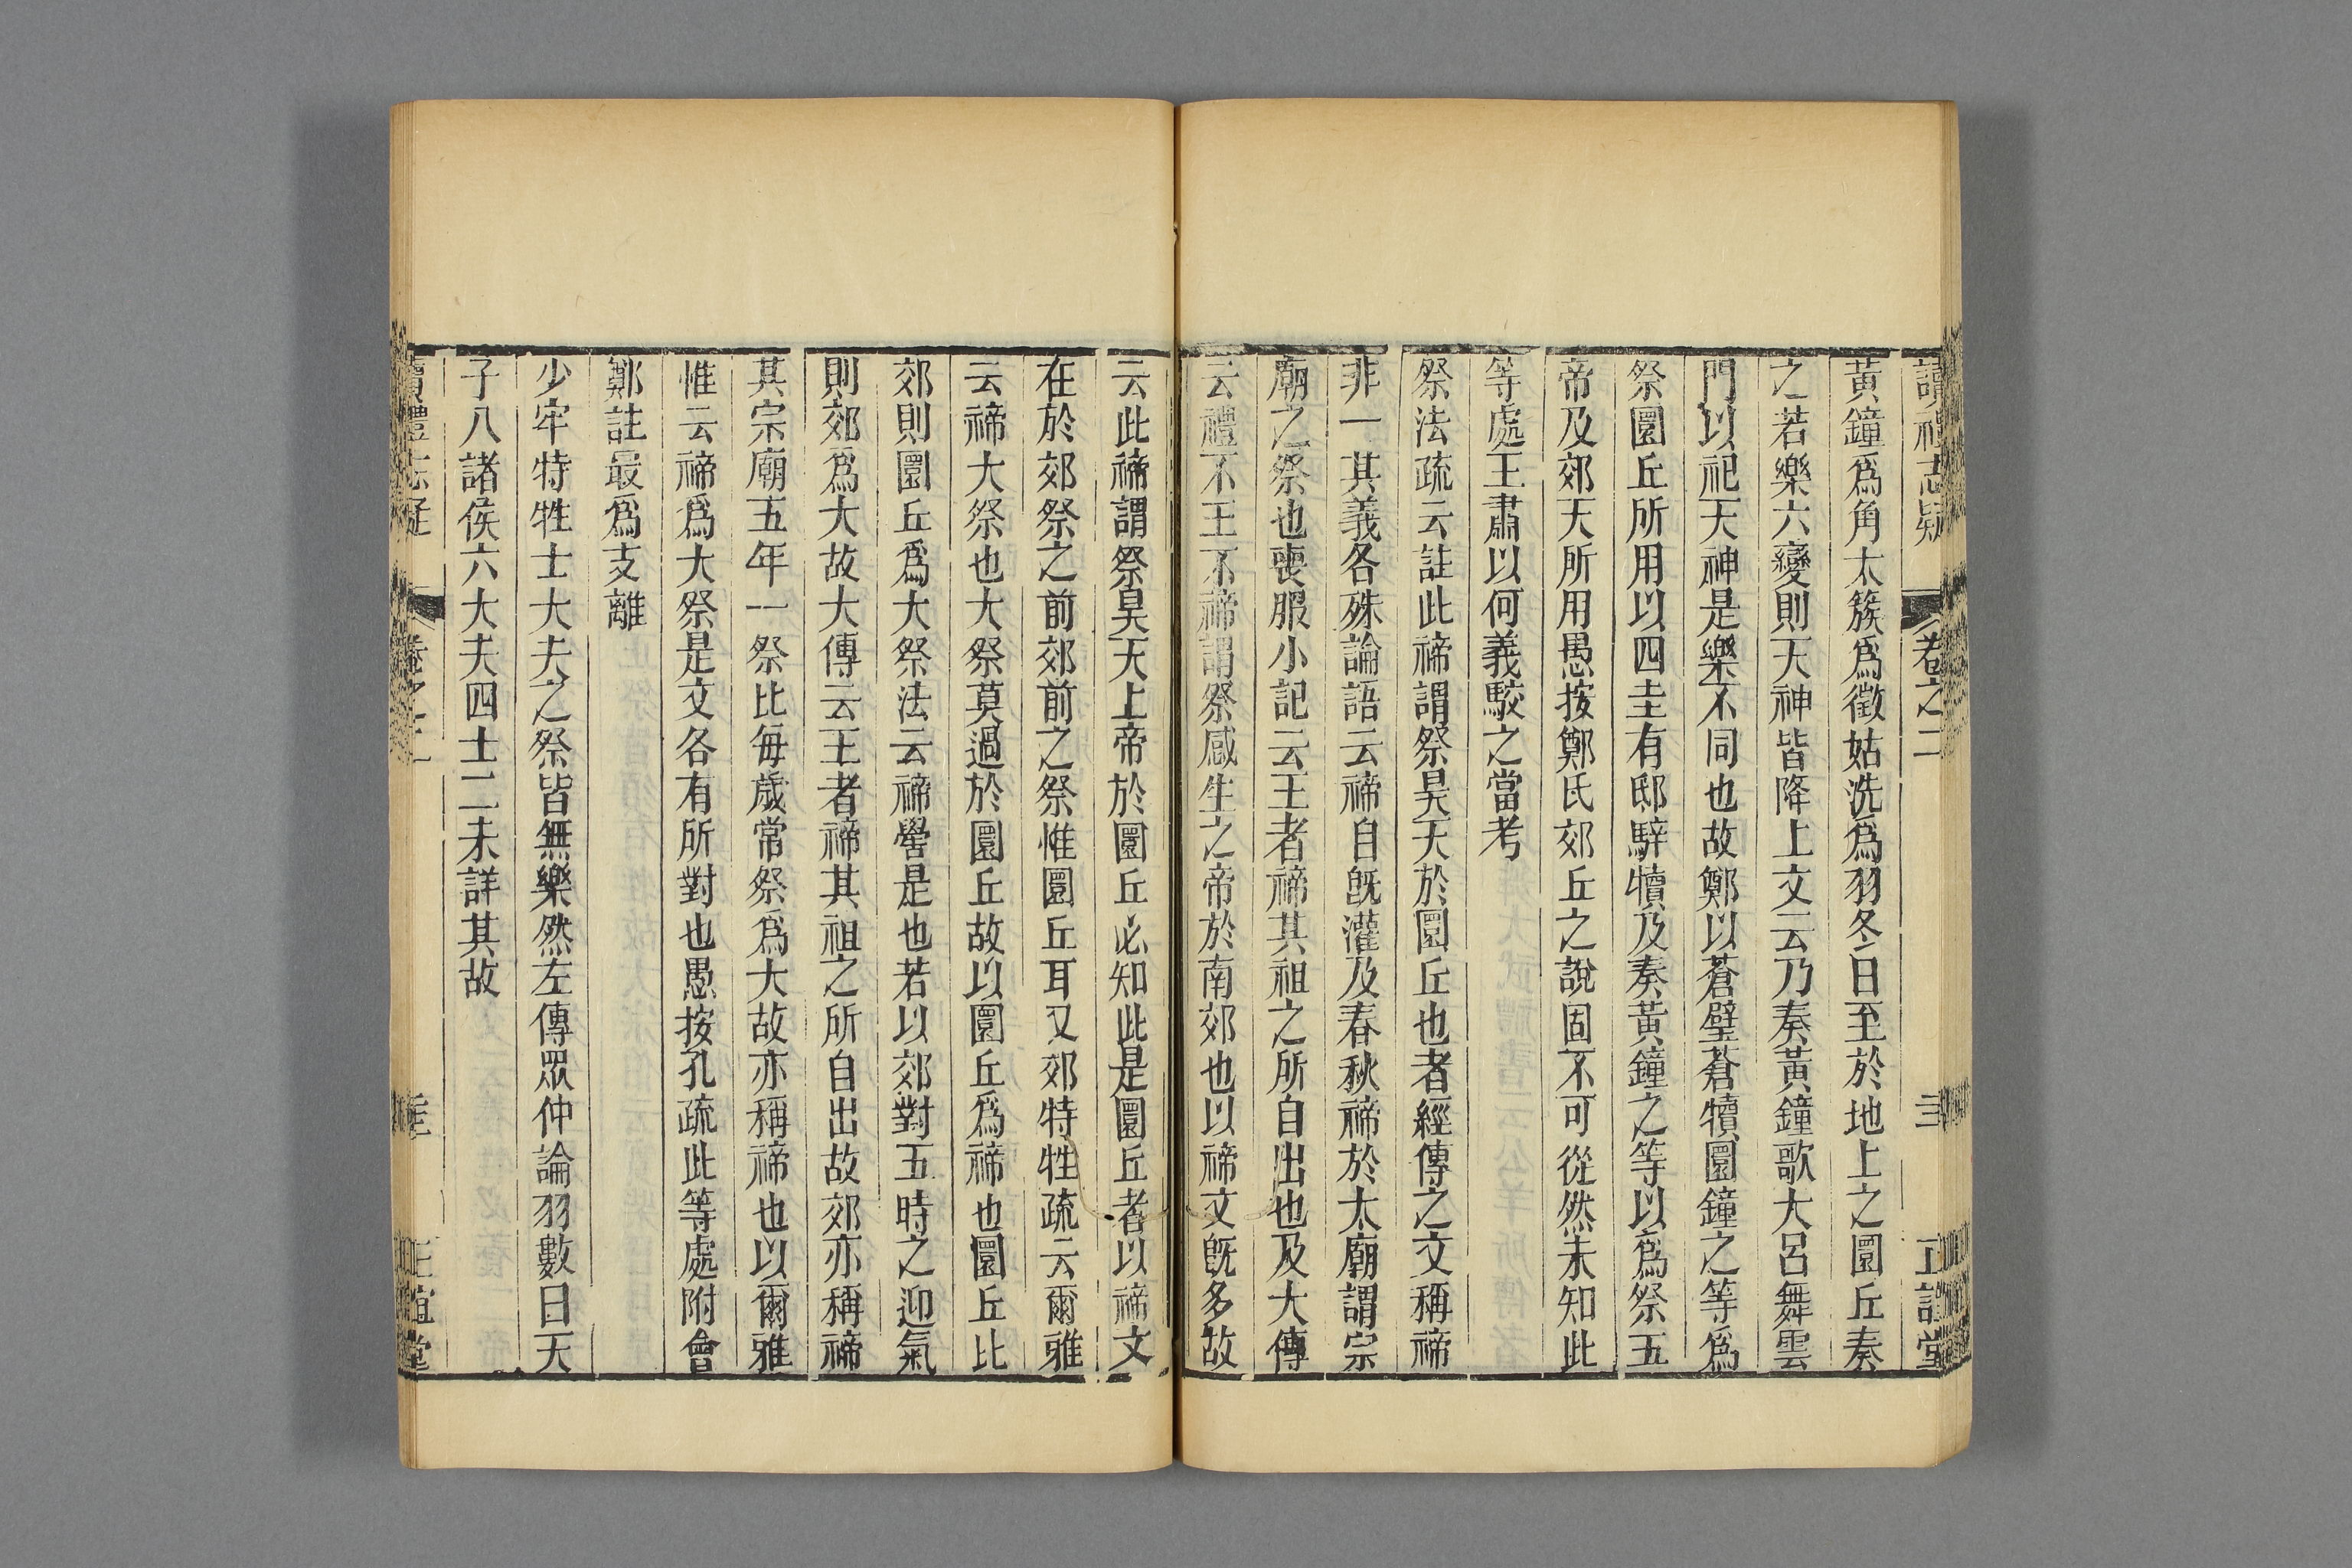 讀禮志疑 卷之二 正誼堂
黃鐘爲角太簇爲徵姑洗爲羽冬日至於地上之圜丘奏
之若樂六變則天神皆降上文云乃奏黃鐘歌大呂舞雲
門以祀天神是樂不同也故鄭以蒼璧蒼犢圜鐘之等爲
祭圜丘所用以四圭有邸騂犢及奏黃鐘之等以爲祭五
帝及郊天所用愚按鄭氏郊丘之說固不可從然未知此
等處王肅以何義駮之當考
祭法疏云註此禘謂祭昊天於圜丘也者經傳之文稱禘
非一其義各殊論語云禘自旣灌及春秋禘於太廟謂宗
廟之祭也喪服小記云王者禘其祖之所自出也及大傳
云禮不王不禘謂祭感生之帝於南郊也以禘文旣多故
云此禘謂祭昊天上帝於圜丘必知此是圜丘者以禘文
在於郊祭之前郊前之祭惟圜丘耳又郊特牲疏云爾雅
云禘大祭也大祭莫過於圜丘故以圜丘爲禘也圜丘比
郊則圜丘爲大祭法云禘嚳是也若以郊對五時之迎氣
則郊爲大故大傳云王者禘其祖之所自出故郊亦稱禘
其宗廟五年一祭比每歲常祭爲大故亦稱禘也以爾雅
惟云禘爲大祭是文各有所對也愚按孔疏此等處附會
鄭註最爲支離
少牢特牲士大夫之祭皆無樂然左傳眾仲論羽數曰天
子八諸侯六大夫四士二未詳其故
讀禮志疑 卷之二 正誼堂